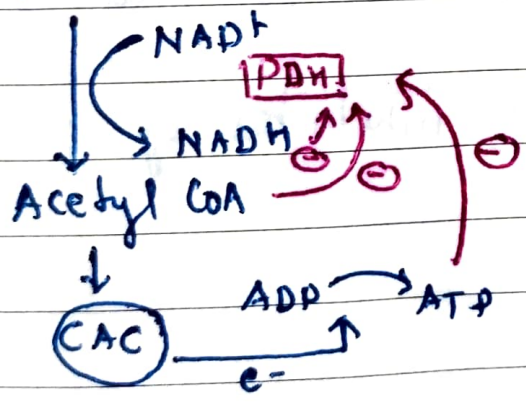 NAD+
PDH
NADH
⊖
Acetyl CoA
⊖
⊖
ADP
ATP
CAC
e-